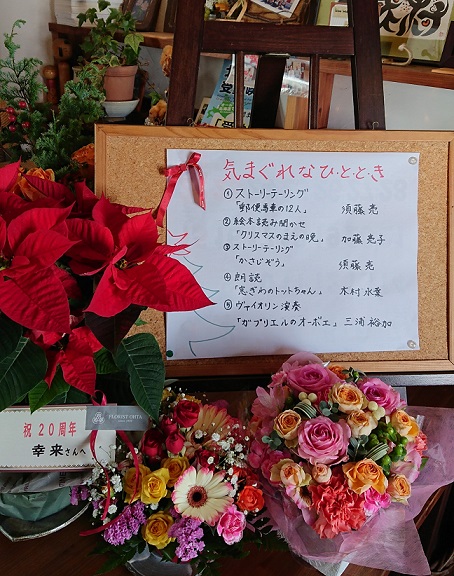 気まぐれなひ・と・と・き
① ストーリーテーリング
「郵便馬車の12人」 須藤亮
② 絵本読み聞かせ
「クリスマスのまえの晩」 加藤亮子
③ ストーリーテーリング
「かさじぞう」 須藤亮
④ 朗読
「窓ぎわのトットちゃん」 木村永葉
⑤ ヴァイオリン演奏
「ガブリエルのオーボエ」 三浦裕加
FLORIST OHTA
祝20周年
幸来さんへ